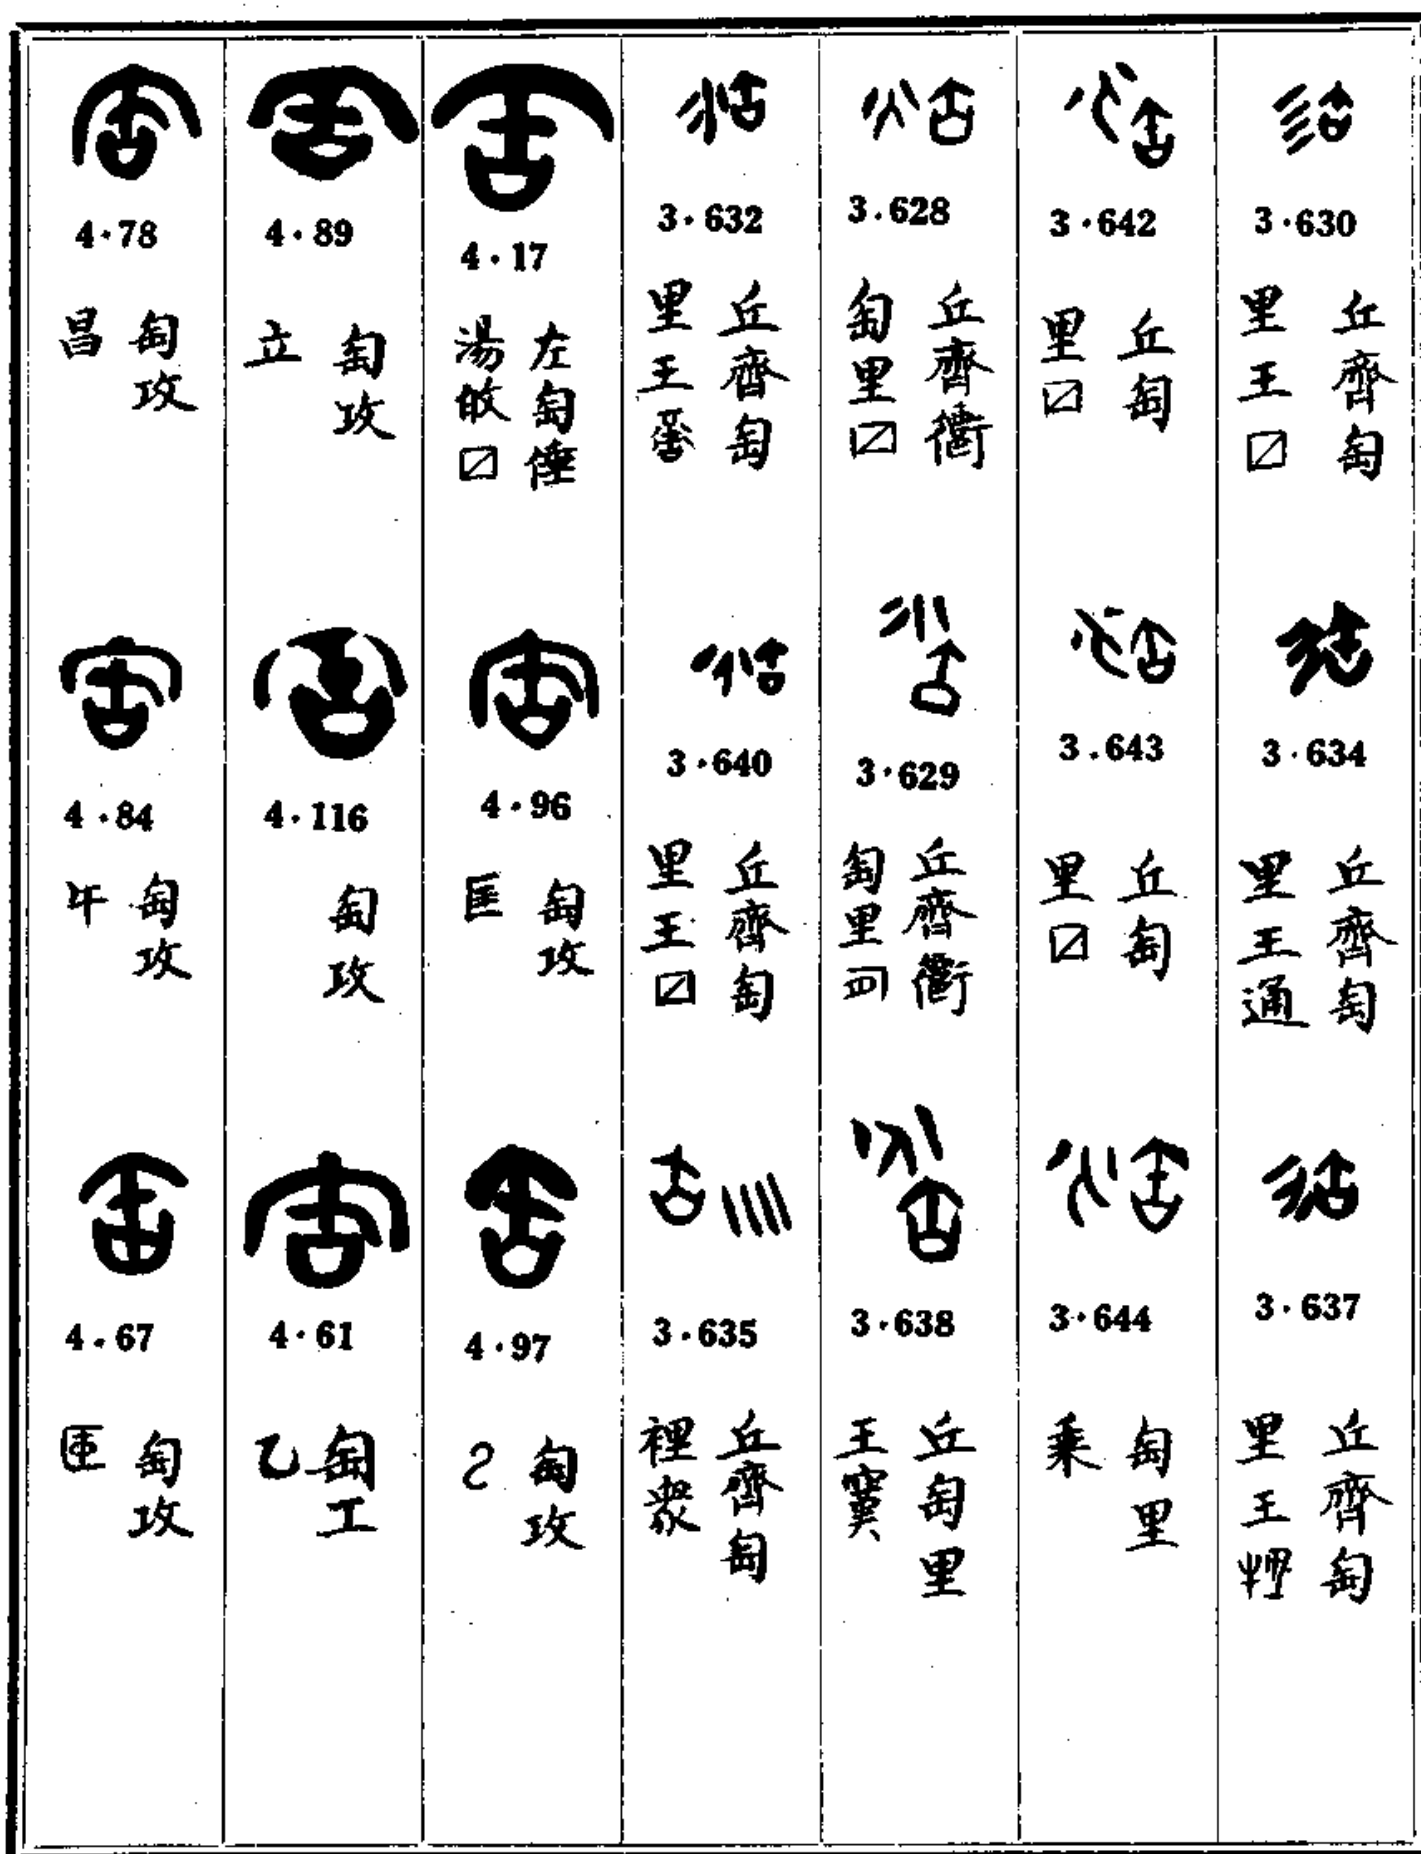 3·630
丘齊匋
里王〼
3·634
丘齊匋
里王通
3·637
丘齊匋
里王
3·642
丘匋
里〼
3·643
丘匋
里〼
3·644
匋里
乘
3·628
丘齊衢
匋里〼
3·629
丘齊衢
匋里
3·638
丘匋里
王
3·632
丘齊匋
里王
3·640
丘齊匋
里王〼
3·635
丘齊匋
裡眾
4·17
左匋倕
湯攸〼
4·96
匋攻
匡
4·97
匋攻
4·89
匋攻
立
4·116
匋攻
4·61
匋工
乙
4·78
匋攻
昌
4·84
匋攻
午
4·67
匋攻